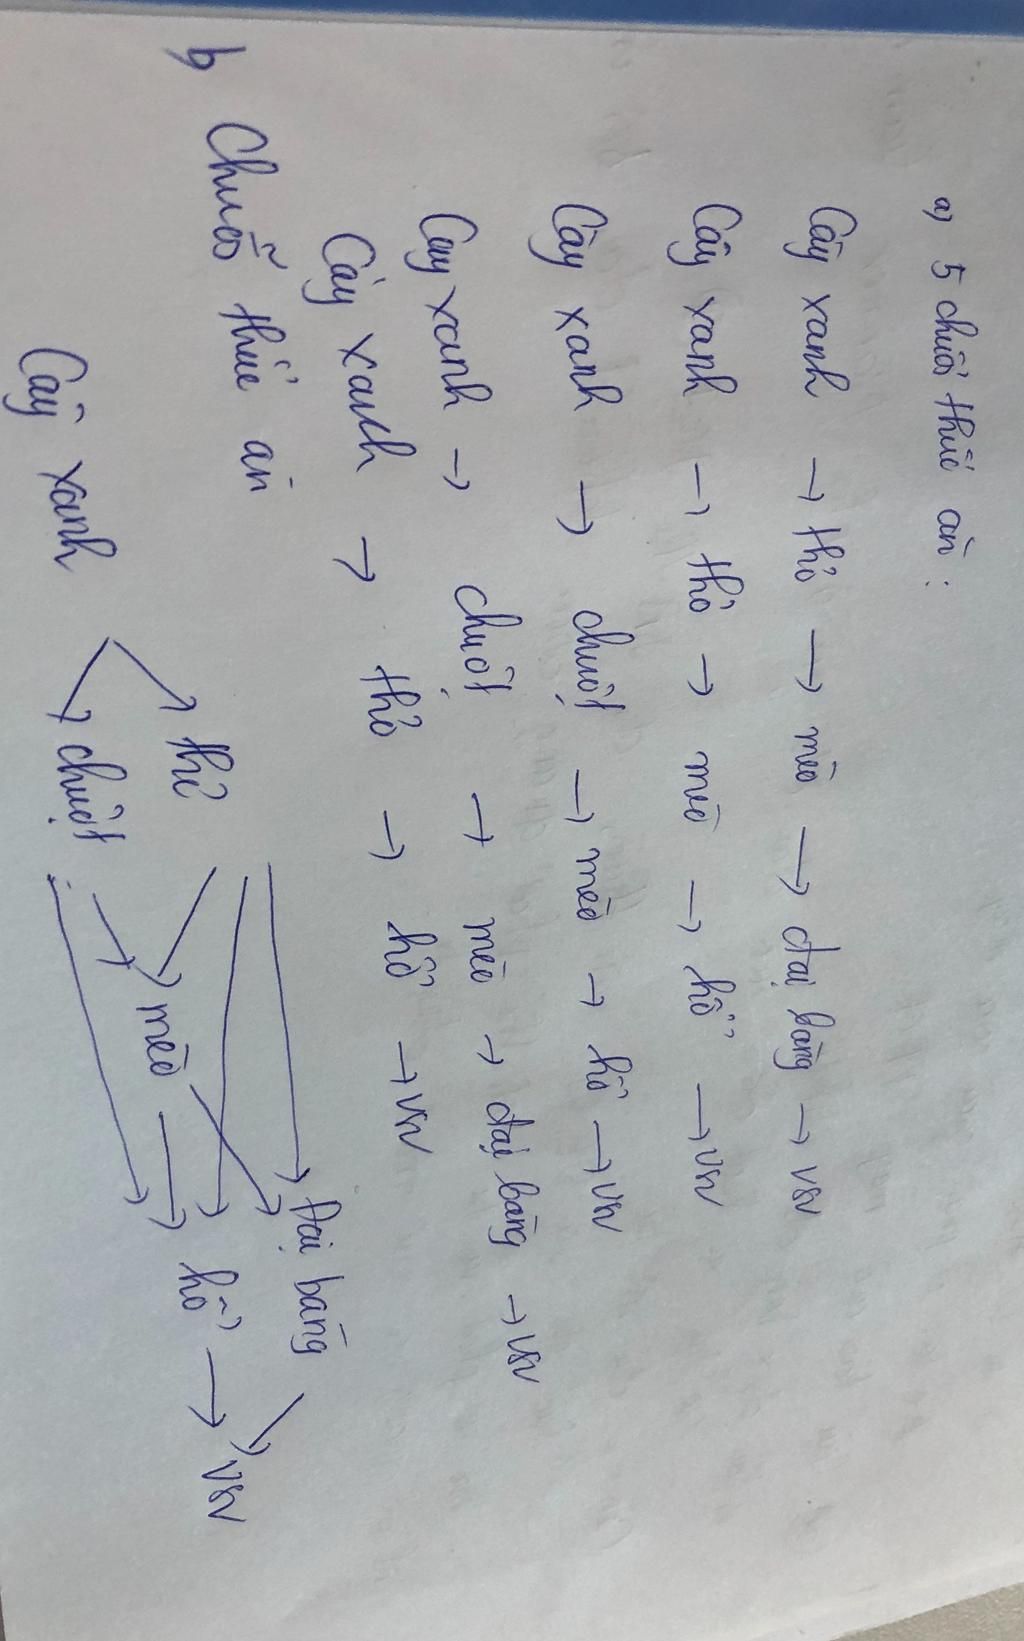 a) 5 chuỗi thức ăn :
Cây xanh → thỏ → mèo → đại bàng → VSV
Cây xanh → thỏ → mèo → hổ → VSV
Cây xanh → chuột → mèo → hổ → VSV
Cây xanh → chuột → mèo → đại bàng → VSV
Cây xanh → thỏ → hổ → VSV
b Chuỗi thức ăn
Đại bàng
thỏ
Cây xanh mèo hổ → VSV
chuột